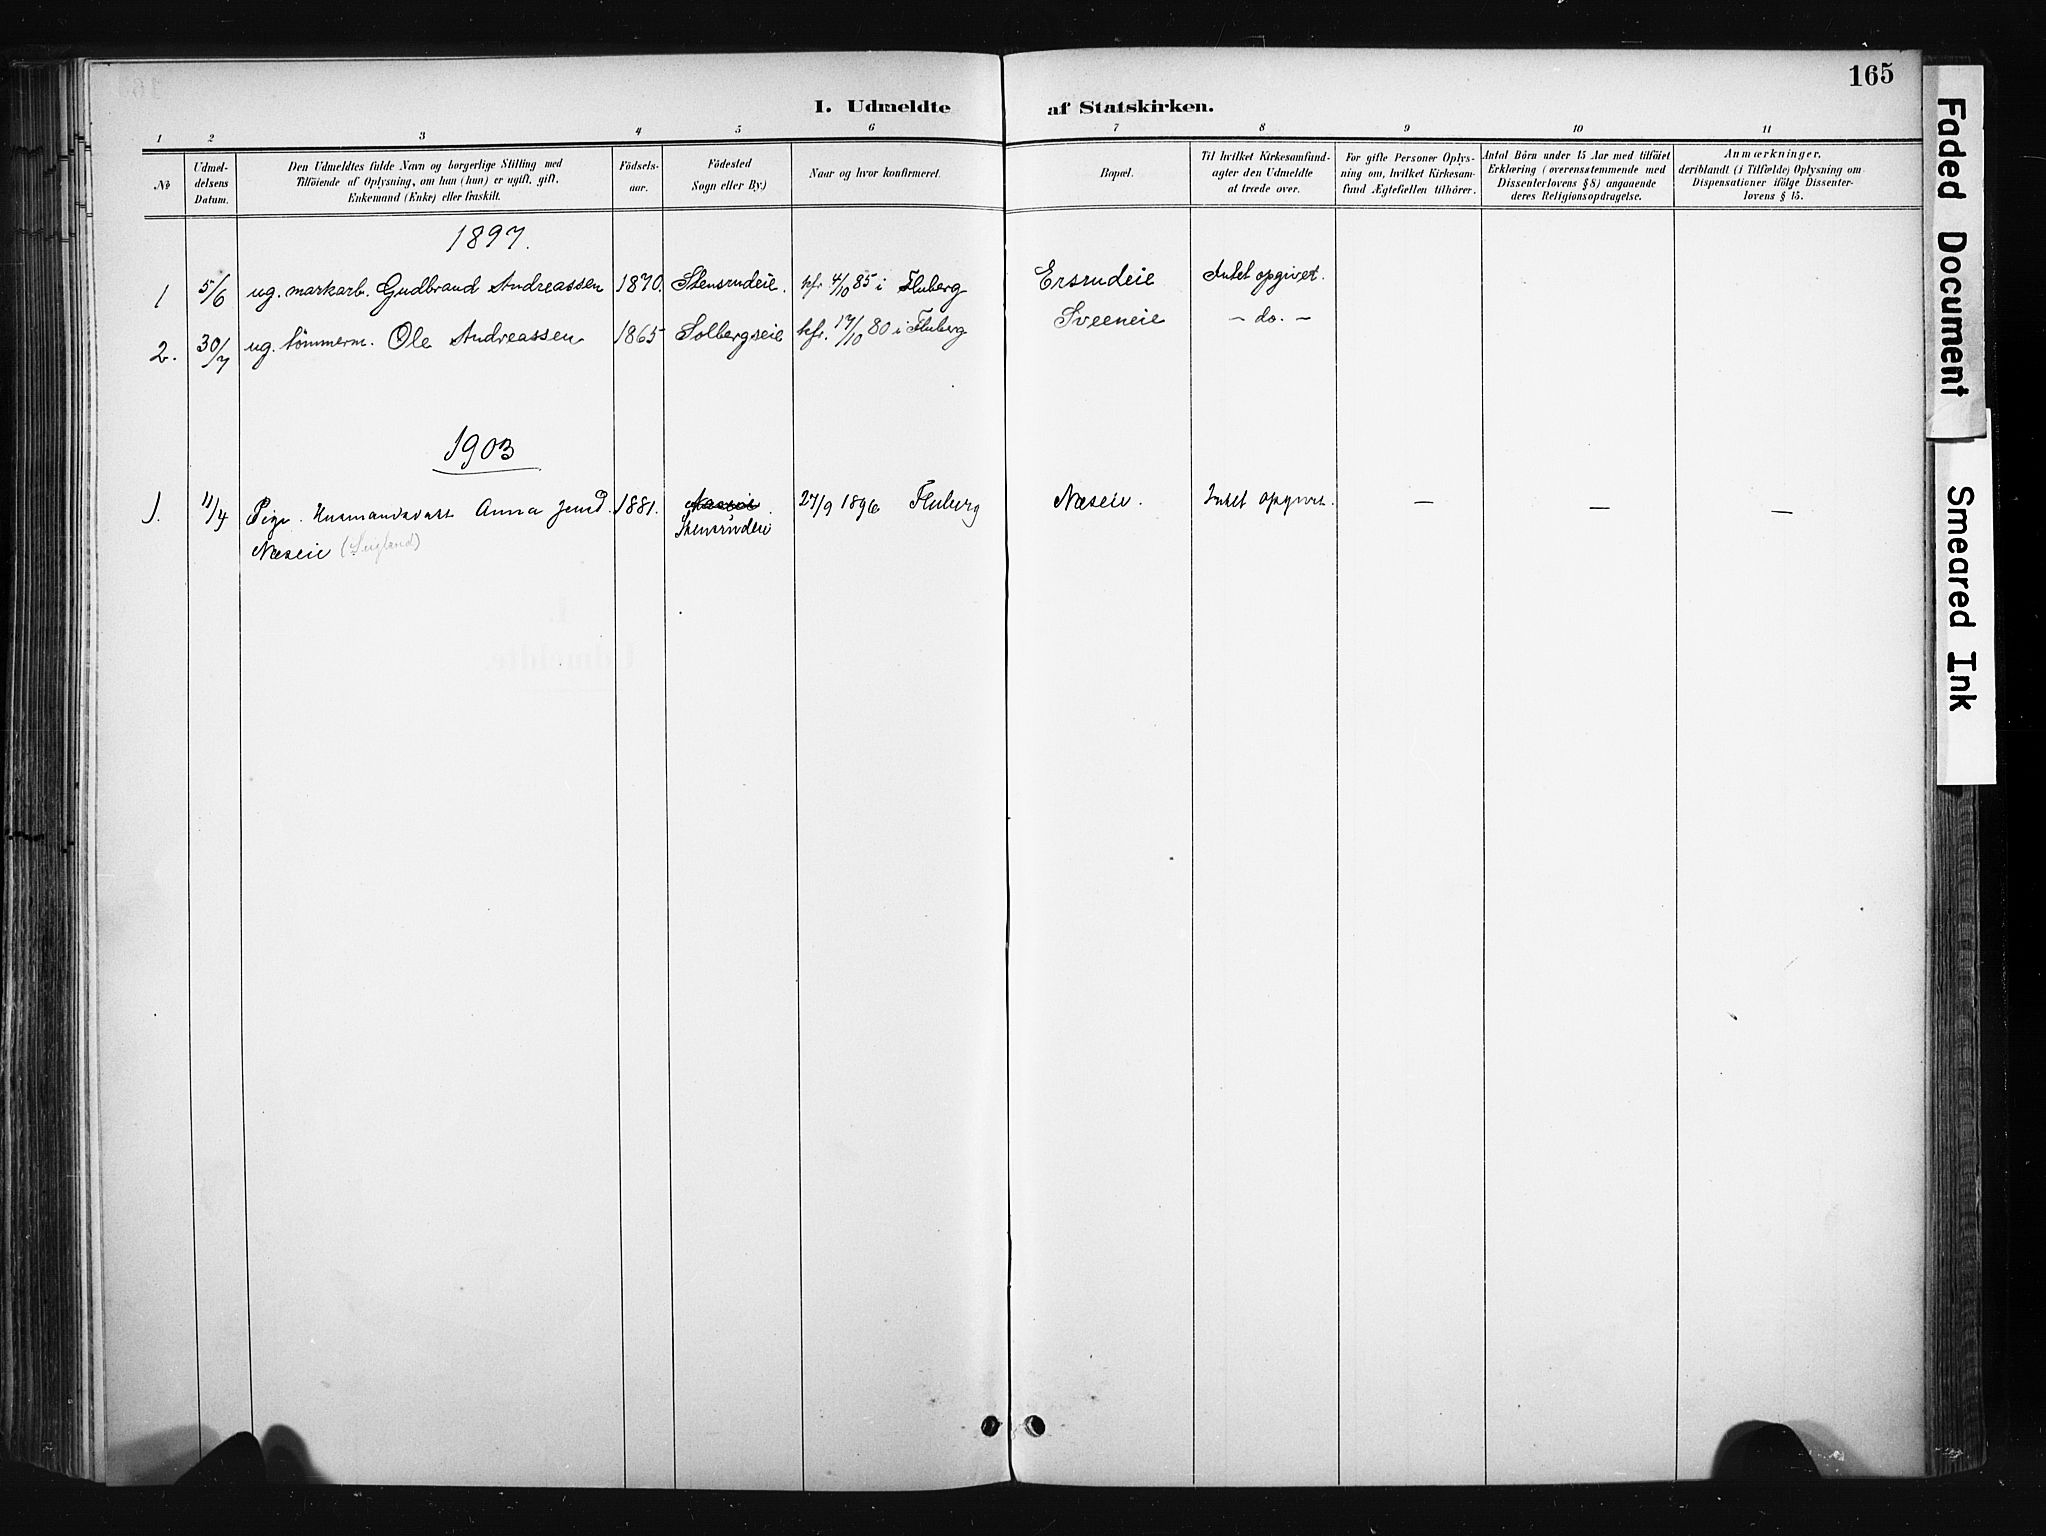 165
I. Udmeldte af Statskirken.
1 2 3 4 5 6 7 8 9 10 11
№
Udmel-
delsens
Datum.
Den Udmeldtes fulde Navn og borgerlige Stilling med
Tilföiende af Oplysning, om han (hun) er ugift, gift,
Enkemand (Enke) eller fraskilt.
Födsels-
aar.
Födested
Sogn eller By.)
Naar og hvor konfirmeret.
Bopæl.
Til hvilket Kirkesamfund-
agter den Udmeldte
at træde over.
For gifte Personer Oplys-
ning om, hvilket Kirkesam-
fund Ægtefællen tilhörer.
Antal Börn under 15 Aar med tilföiet
Erklæring (overensstemmende med
Dissenterlovens § 8) angaaende
deres Religionsopdragelse.
Anmærkninger,
deriblandt (i Tilfælde) Oplysning om
Dispensationer ifölge Dissenter-
lovens § 15.
1897.
1 5/6 ug. markarb. Gudbrand Andreassen 1870. Stensrudeie. kfr 4/10 85 i Fluberg Ersrudeie Intet opgivet.
2. 30/7 ug. tömmerm. Ole Andreassen 1865 Solbergseie kfr. 17/10 80 i Fluberg Sveeneie - do. -
1903
1. 11/4 Pige. Husmandsdatt Anna Jensd. 1881. Næseie. 27/9 1896 Fluberg Næseie. Intet opgivet. — — —
Stensrudeie
Næseie
Faded Document
Smeared Ink